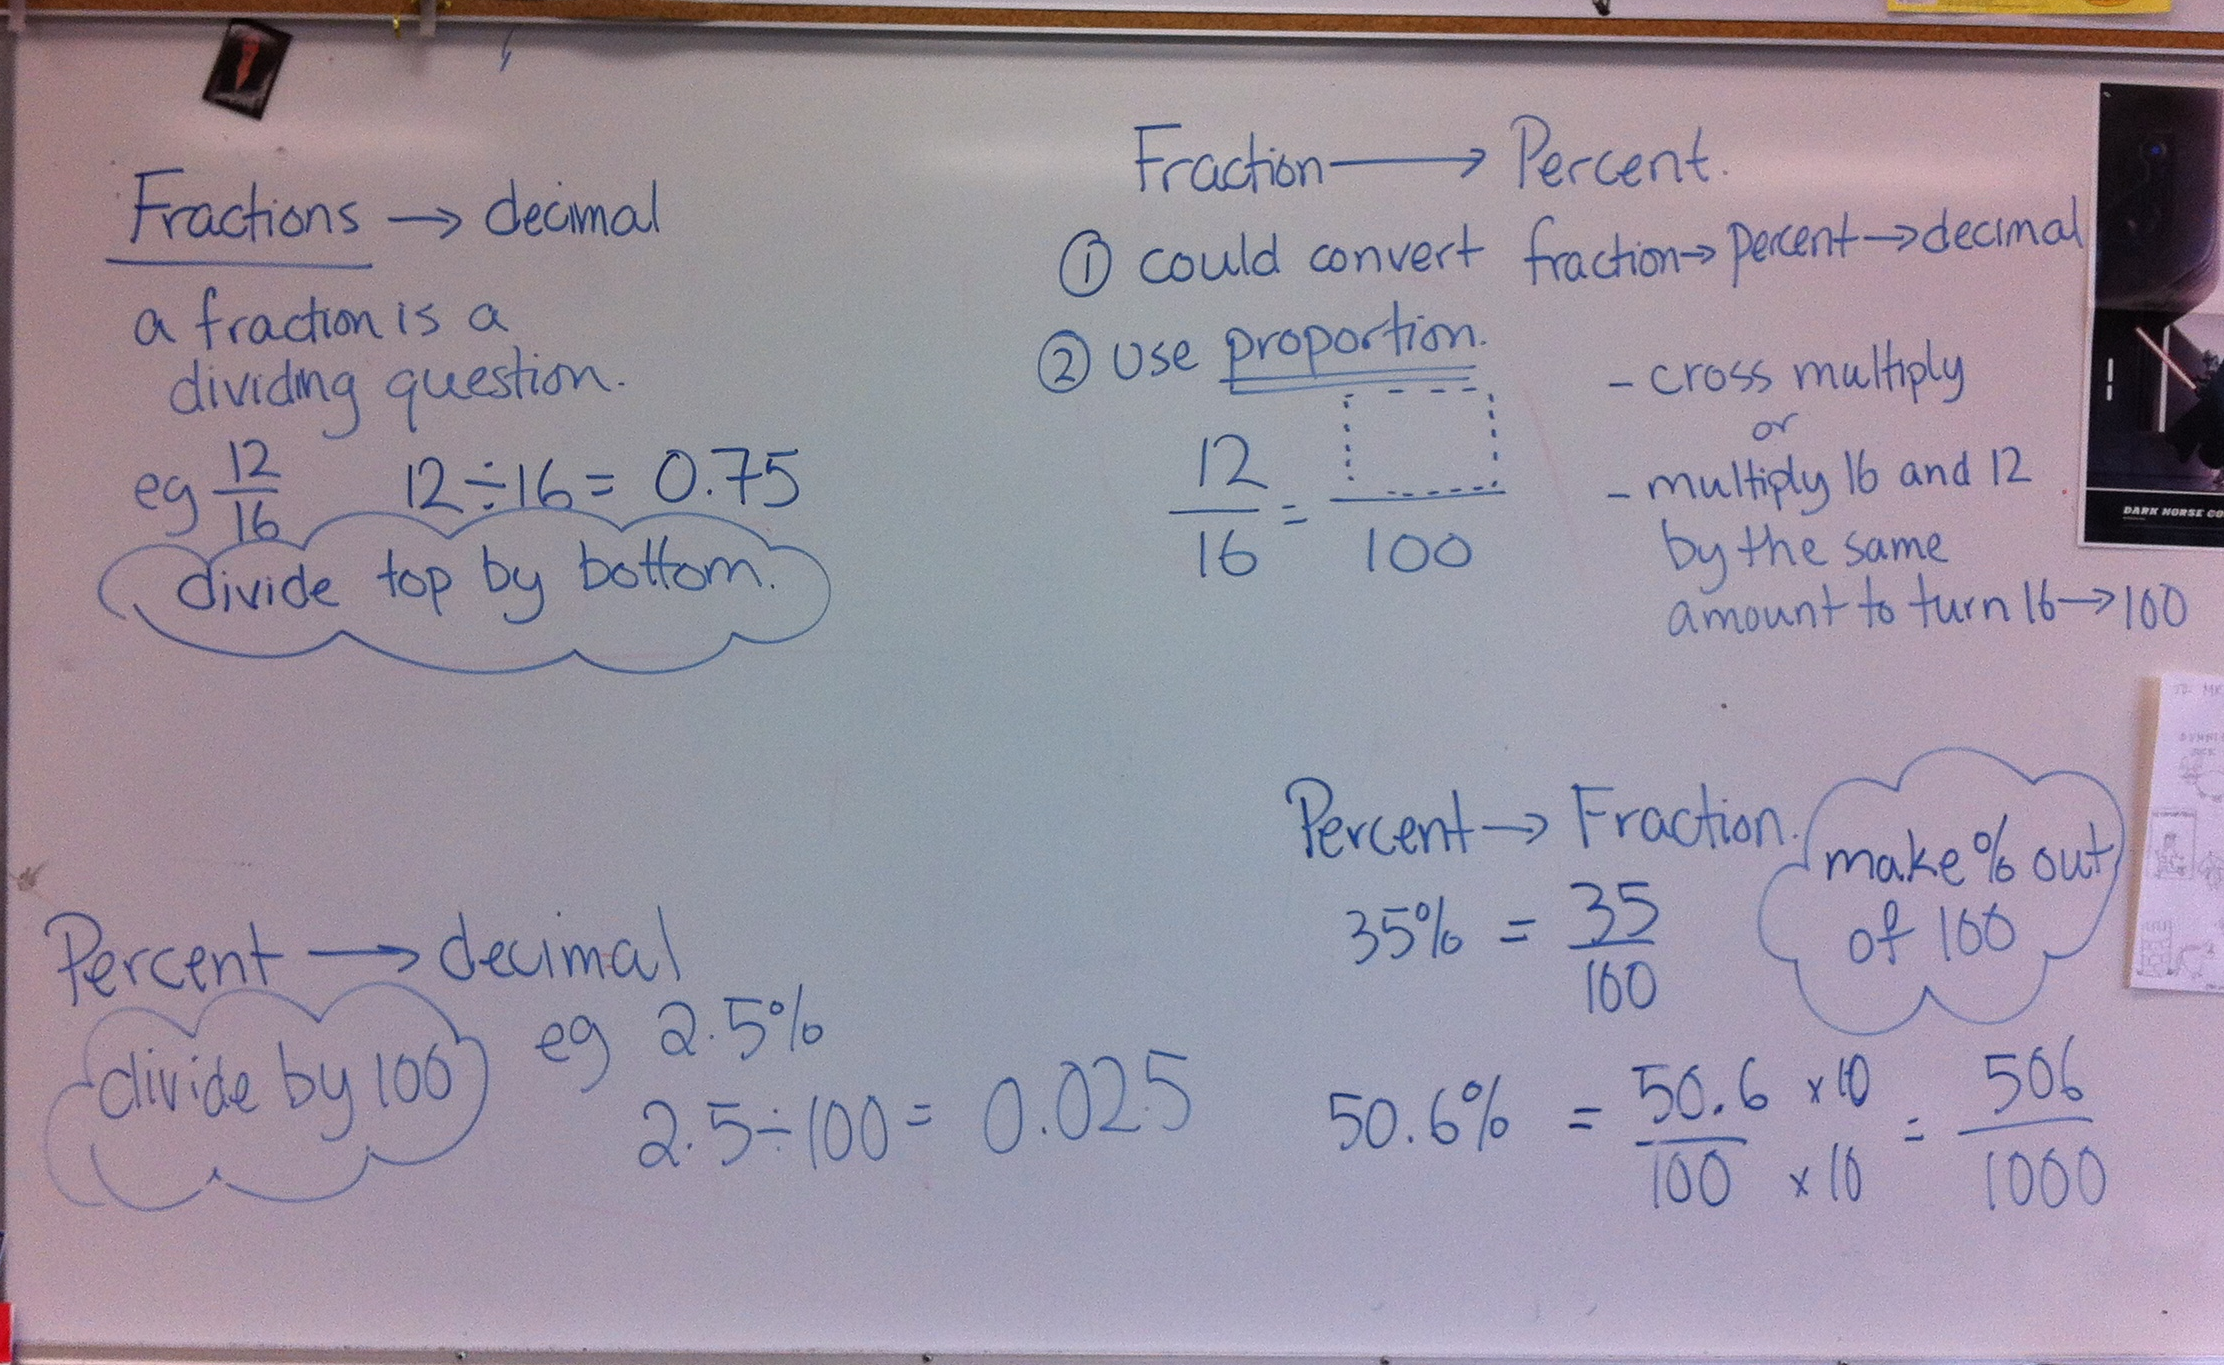 Fractions → decimal
a fraction is a
dividing question.
eg 12/16 12÷16 = 0.75
divide top by bottom.
Fraction → Percent.
① could convert fraction → percent → decimal
② use proportion.
12/16 = /100
- cross multiply
or
- multiply 16 and 12
by the same
amount to turn 16 → 100
DARK HORSE CO
Percent → decimal
divide by 100
eg 2.5%
2.5÷100 = 0.025
Percent → Fraction.
make % out
of 100
35% = 35/100
50.6% = 50.6/100 ×10 ×10 = 506/1000